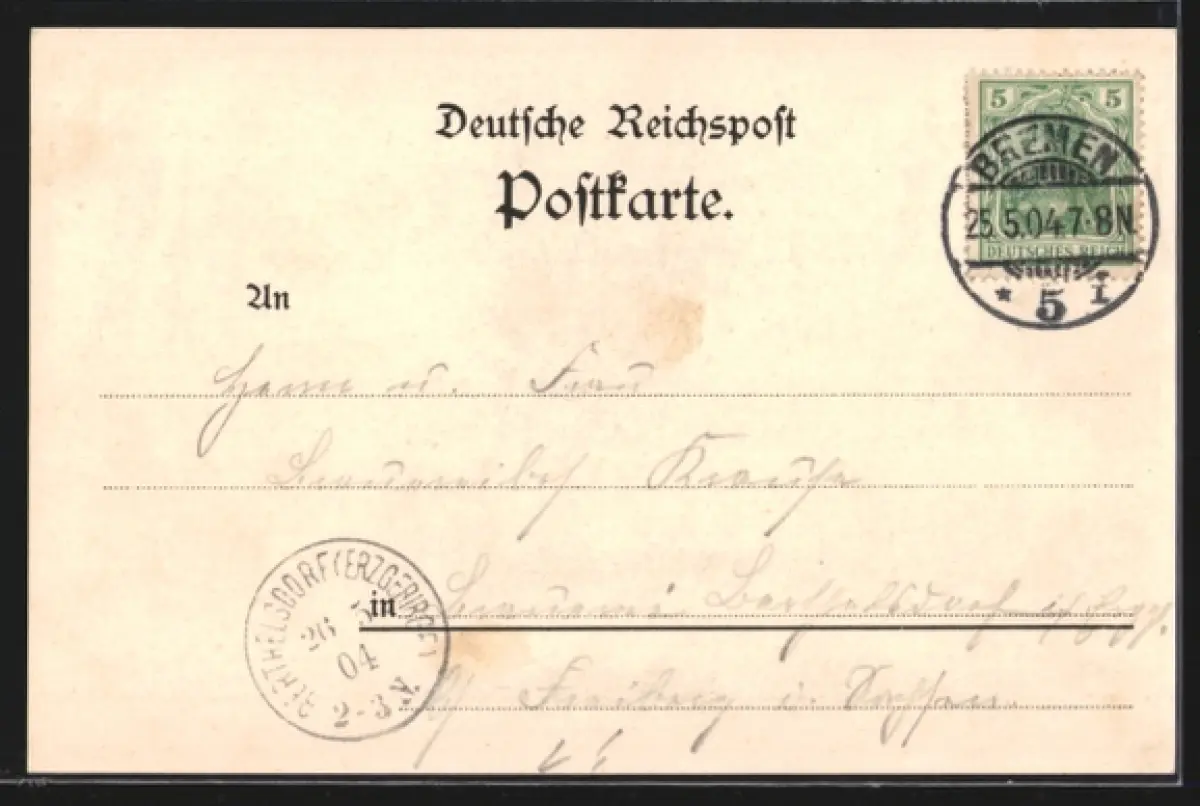 Deutsche Reichspost
Postkarte.
5 5
DEUTSCHES REICH
BREMEN
25.5.04.7-8N.
* 5 I
An
Herrn u. Frau
Brauereibes. Krause
in Brauerei Berthelsdorf
b/ Freiberg i. Sachsen.
BERTHELSDORF (ERZGEBIRGE)
26 5
04
2-3 N.